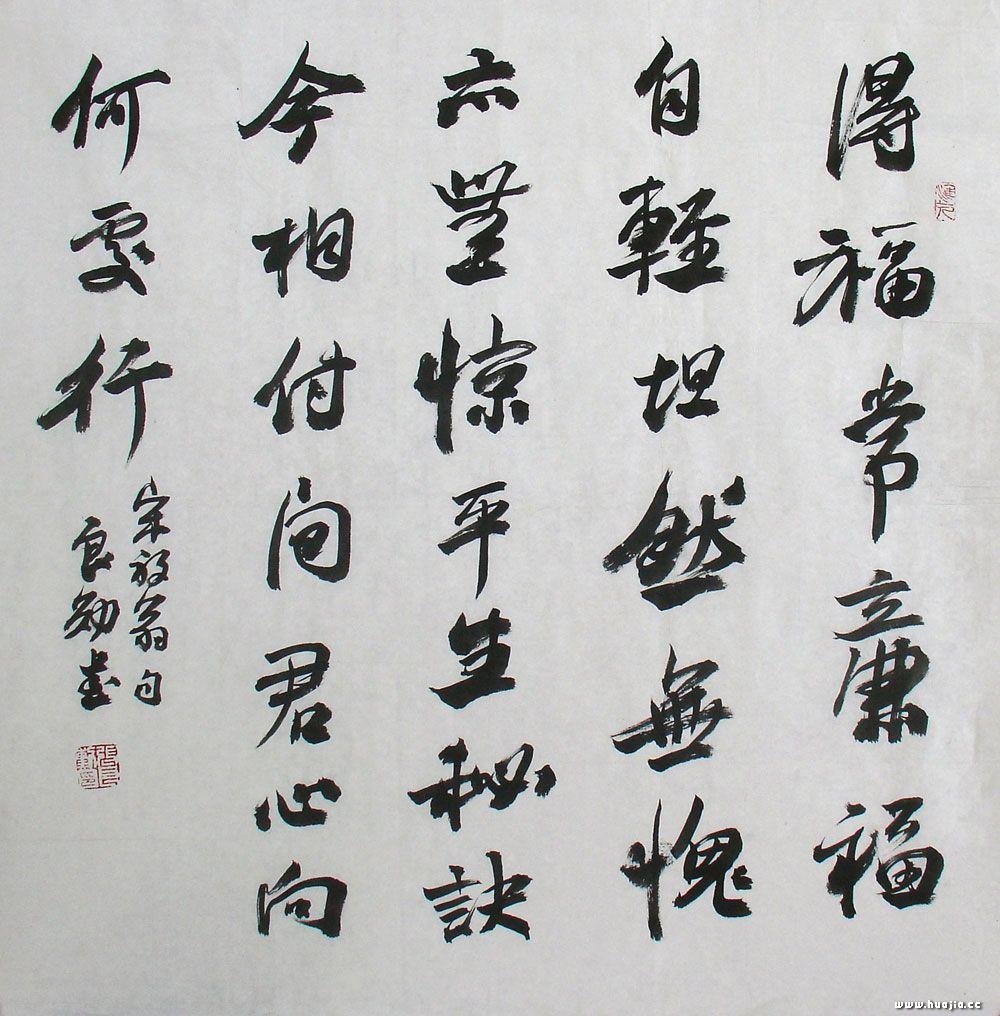 得福常廉福
自輕坦然無愧
亦無惊平生秘訣
今相付问君心向
何處行
宋放翁句
良勋書
www.huajia.cc